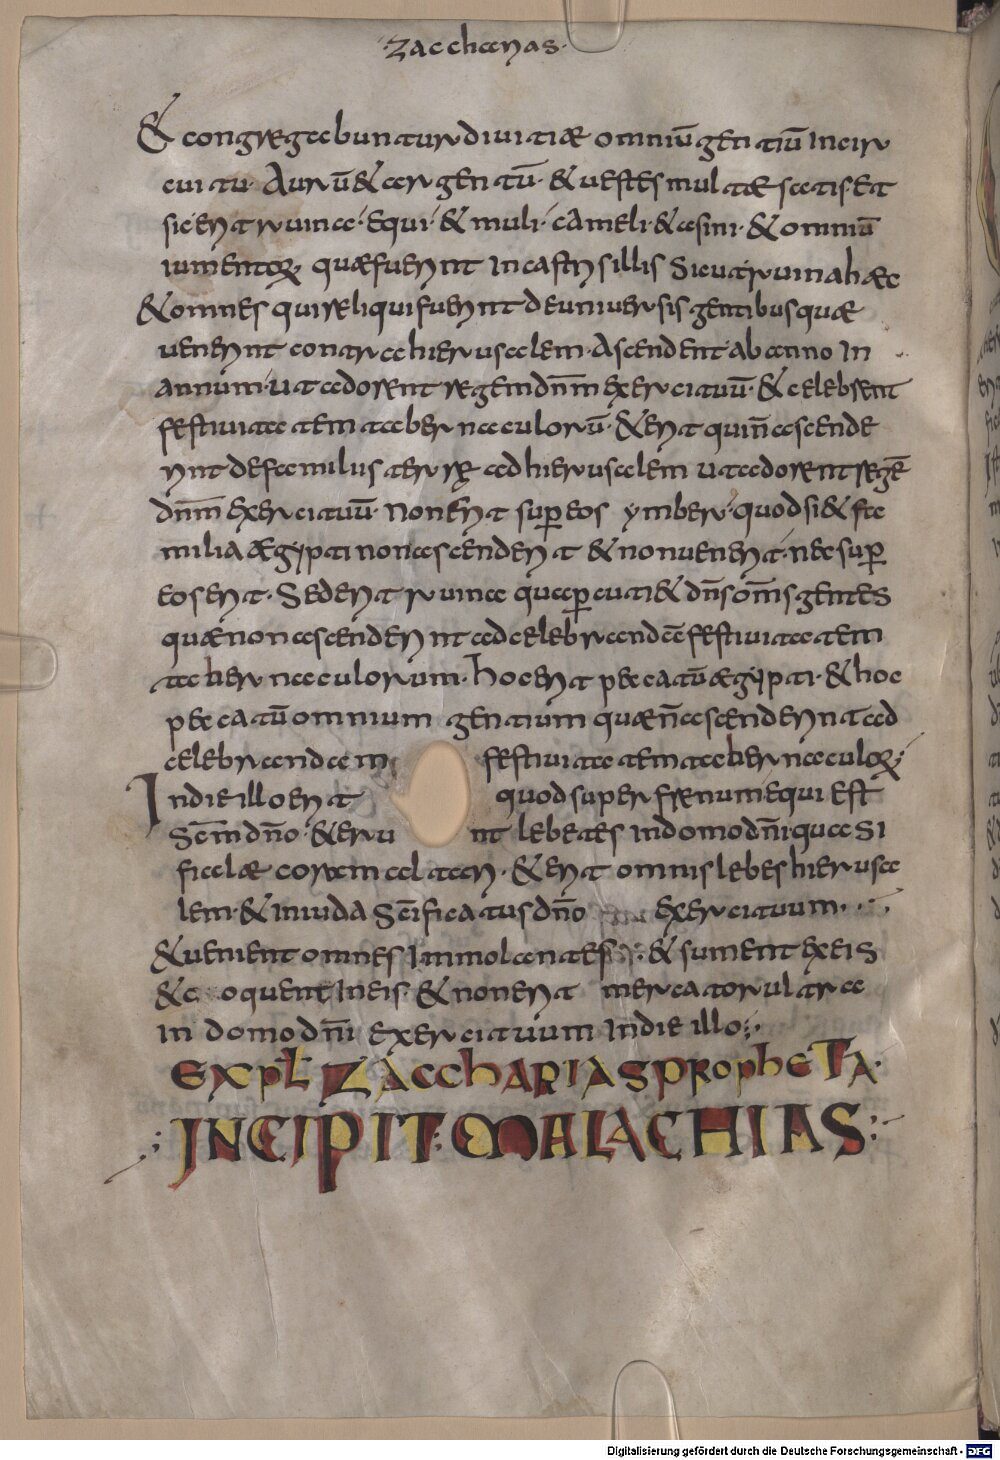 ·zaccharias·
& congregabuntur diuitiæ omniū gentiū Incir
cuitu· Aurū & argentū· & uestes multæ satis· Et
sic erit ruina· Equi· & muli· cameli· & asini· & omniū
iumentorꝝ quæ fuerint In castris illis sicut ruina hæc
& omnes qui reliqui fuerint de uniuersis gentibus quæ
uenerint contra hierusalem· Ascendent ab anno In
annum· ut adorent regem dn̄m exercituū· & celebrent
festiuitatem tabernaculorū· & erit qui n̄ ascende
rint de familiis terrę ad hierusalem ut adorent regē
dn̄m exercituū· Non erit suꝑ eos ymber· quod si & fa
milia ægypti non ascenderit & non uenerit· nec suꝑ
eos erit· Sed erit ruina qua ꝑcuti& dn̄s om̄s gentes
quæ non ascenderint ad celebrandā festiuitatem
tabernaculorum· hoc erit peccatū ægypti· & hoc
peccatū omnium gentium quæ n̄ ascenderint ad
celebrandam festiuitatem tabernaculorꝝ
In die illo erit quod super frenum equi est
sc̄m dn̄o· & eru nt lebetes In domo dn̄i· quasi
fialæ coram altari· & erit omnis lebes hierusa
lem· & In iuda sc̄ificatus dn̄o exercituum·
& uenient omnes Immolantes· & sument ex eis
& coquent In eis· & non erit mercator ultra
in domo dn̄i exercituum In die illo·
expl̄ zacchariAs propheTA·
INCIPIT· MALACHIAS·
Digitalisierung gefördert durch die Deutsche Forschungsgemeinschaft - DFG